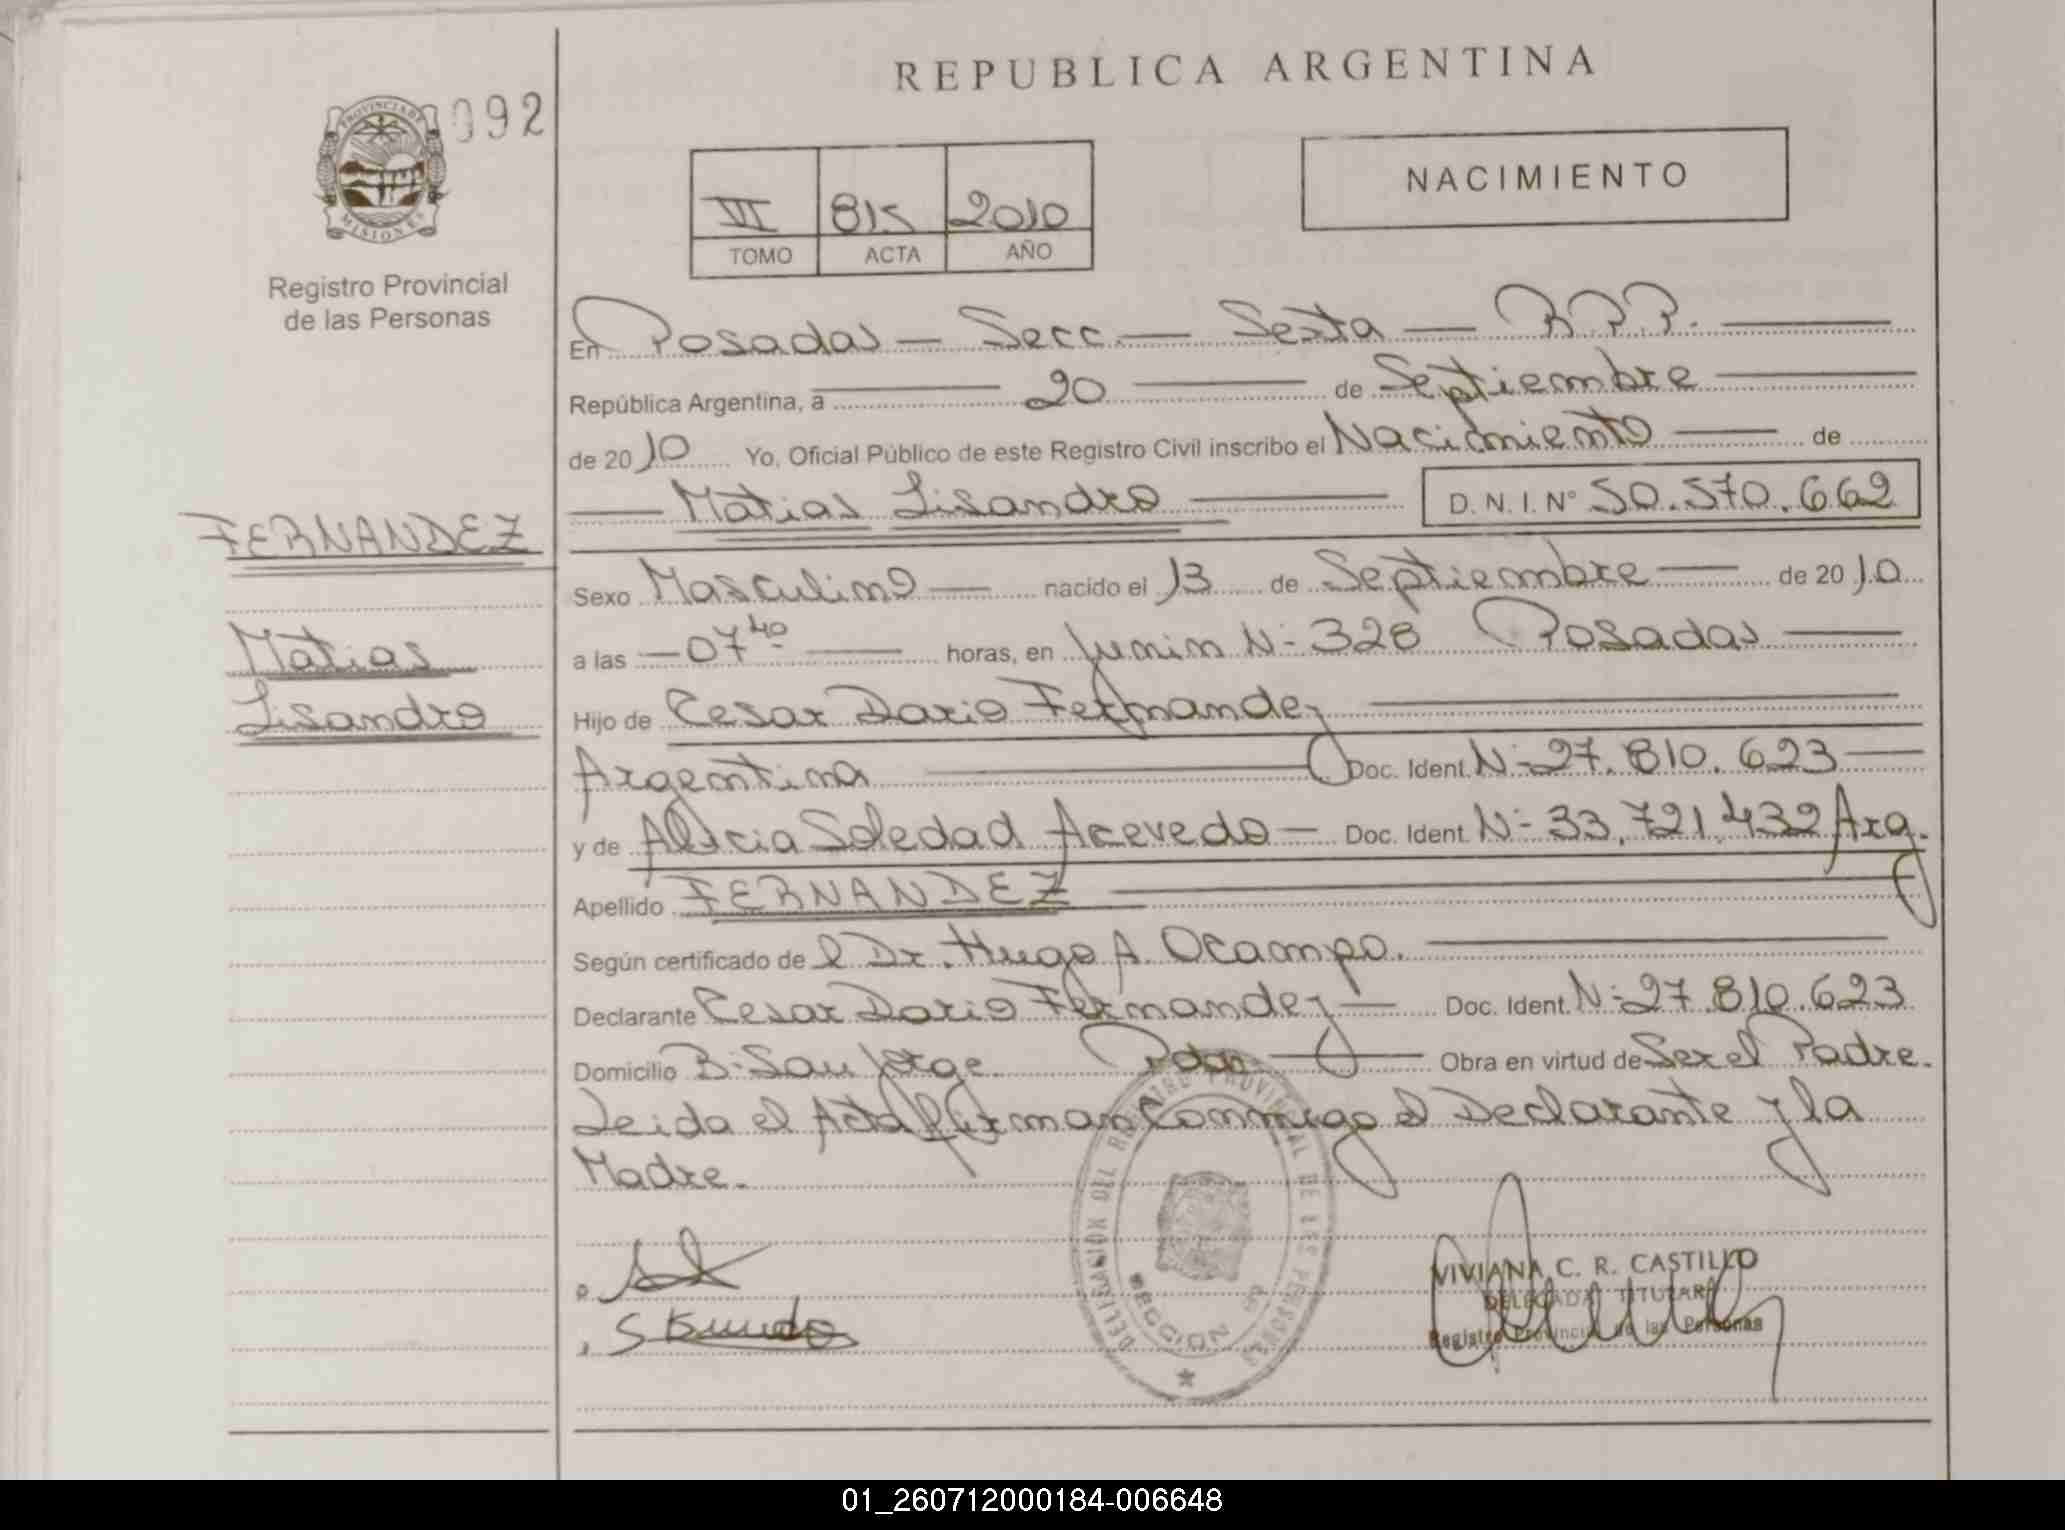 REPUBLICA ARGENTINA
092
PROVINCIA DE
MISIONES
Registro Provincial
de las Personas
VI 815 2010
TOMO ACTA AÑO
NACIMIENTO
En Posadas — Secc. — Sexta — R.P.P. —
República Argentina, a — 20 — de Septiembre —
de 2010 Yo, Oficial Público de este Registro Civil inscribo el Nacimiento — de
— Matias Lisandro — D. N. I. N° 50.570.662
FERNANDEZ
Matias
Lisandro
Sexo Masculino — nacido el 13 de Septiembre — de 2010
a las — 07 40 — horas, en Junin N: 328 Posadas —
Hijo de Cesar Dario Fernandez —
Argentina — Doc. Ident. N: 27.810.623 —
y de Alicia Soledad Acevedo — Doc. Ident. N: 33.721.432 Arg.
Apellido FERNANDEZ —
Según certificado de l Dr. Hugo A. Ocampo. —
Declarante Cesar Dario Fernandez — Doc. Ident. N: 27.810.623
Domicilio B: San Jorge. Pdas — Obra en virtud de Ser el Padre.
Leida el Acta firman Conmigo el Declarante y la
Madre.
DELEGACION DEL REGISTRO PROVINCIAL DE LAS PERSONAS
SECCION 6a
VIVIANA C. R. CASTILLO
DELEGADA TITULAR
Registro Provincial de las Personas
01_260712000184-006648